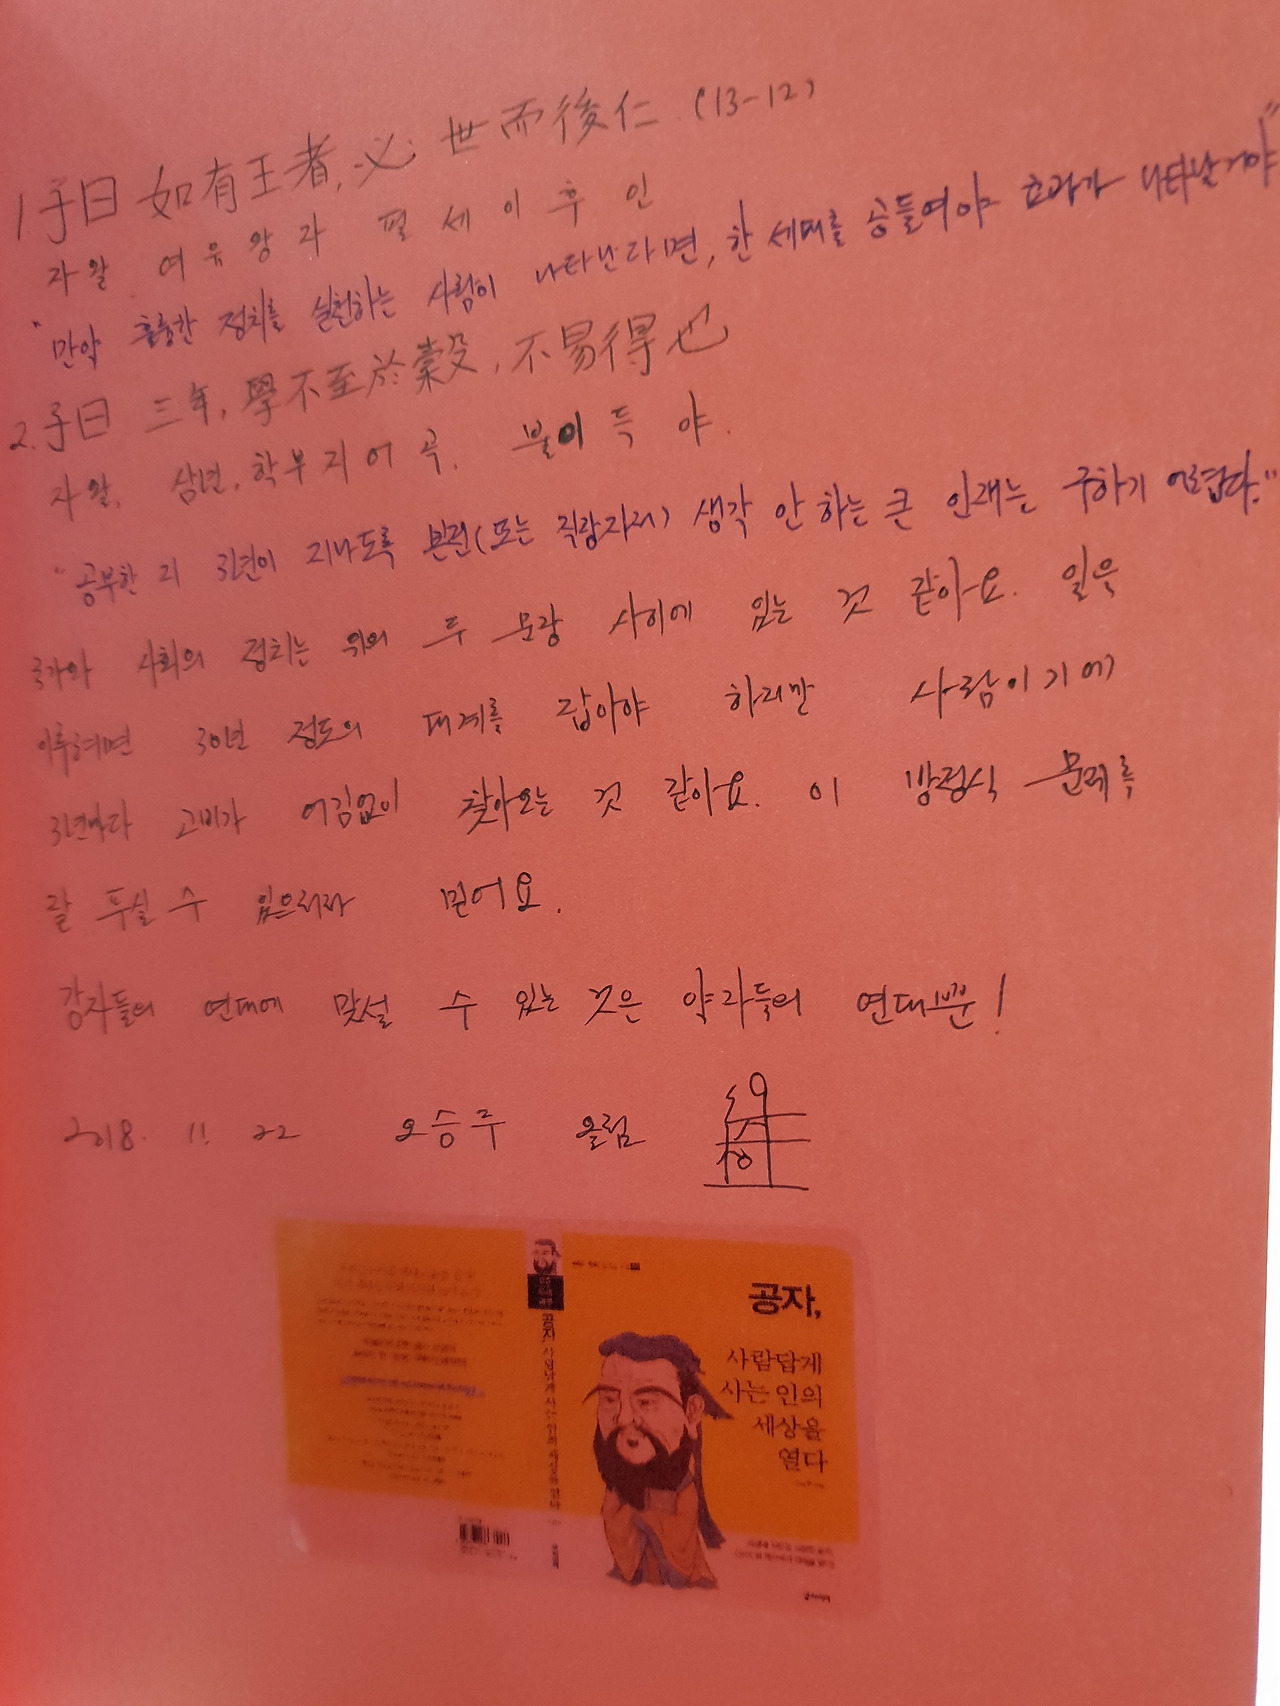 1 子曰 如有王者, 必 世而後仁. (13-12)
자왈 여유왕자 필세이후인
"만약 훌륭한 정치를 실천하는 사람이 나타난다면, 한 세대를 공들여야 효과가 나타날거야"
2. 子曰 三年, 學不至於穀, 不易得也
자왈. 삼년. 학부지어곡. 불이득야.
"공부한 지 3년이 지나도록 본전(또는 직장자리) 생각 안 하는 큰 인재는 구하기 어렵다."
국가와 사회의 정치는 위의 두 문장 사이에 있는 것 같아요. 일을
이루려면 30년 정도의 대계를 잡아야 하지만 사람이기에
3년마다 고비가 어김없이 찾아오는 것 같아요. 이 방정식 문제를
잘 푸실 수 있으리라 믿어요.
강자들의 연대에 맞설 수 있는 것은 약자들의 연대뿐!
2018. 11. 22 오승주 올림
공자,
사람답게
사는 인의
세상을
열다
공자, 사람답게 사는 인의 세상을 열다